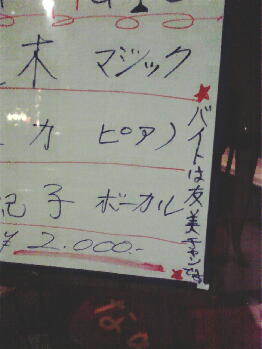 木 マジック
力 ピアノ
紀子 ボーカル
¥2.000.-
★バイトは友美チャンです。★